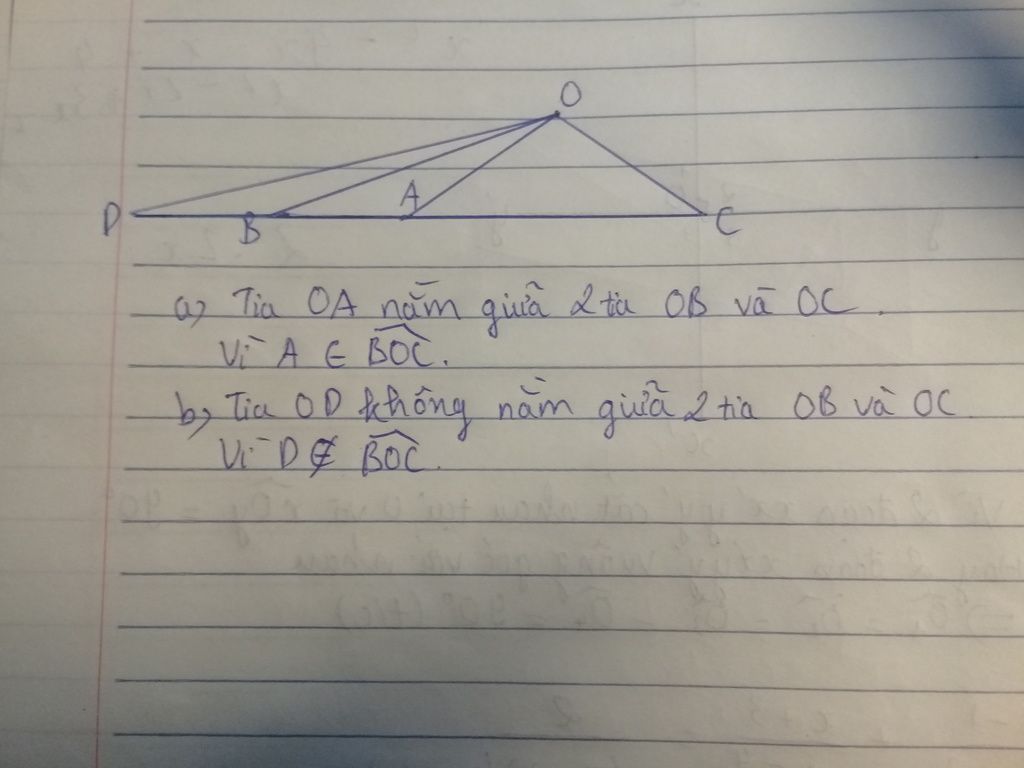 O
D
B
A
C
a, Tia OA nằm giữa 2 tia OB và OC.
Vì A ∈ BOC.
b, Tia OD không nằm giữa 2 tia OB và OC
Vì D ∉ BOC.